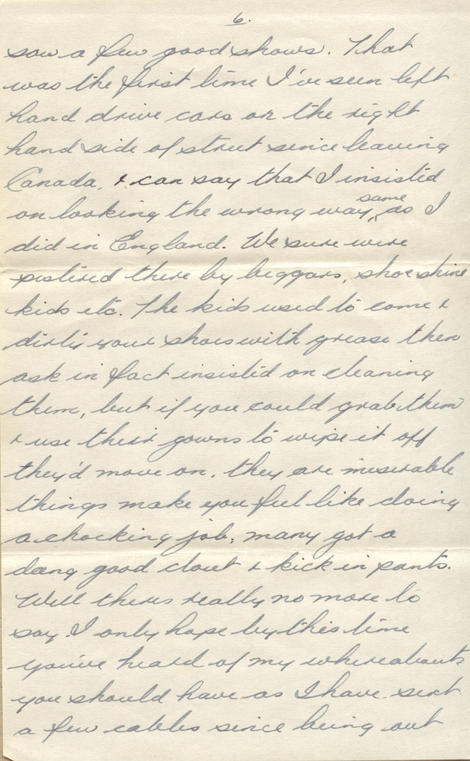 6.
saw a few good shows. That
was the first time I've seen left
hand drive cars or the right
hand side of street since leaving
Canada, & can say that I insisted
on looking the wrong way, same as I
did in England. We sure were
pestired there by beggars, shoe shine
kids etc. The kids used to come &
dirty your shoes with grease then
ask in fact insisted on cleaning
them, but if you could grab them
& use their gowns to wipe it off
they'd move on, they are miserable
things make you feel like doing
a chocking job, many got a
dang good clout & kick in pants.
Well theres really no more to
say. I only hope by this time
you've heard of my whereabouts
you should have as I have sent
a few cables since being out